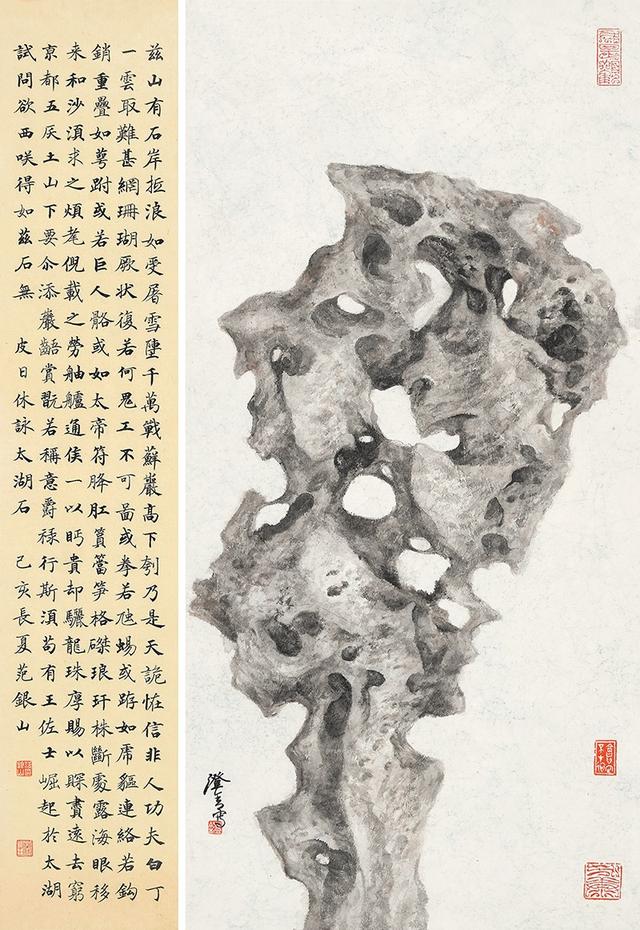 兹山有石岸抵浪如受屠雪陣千萬戰蘚巖高下刳乃是天詭恠信非人功夫白丁
一雲取難甚網珊瑚厥狀復若何鬼工不可啚或拳若虺蜴或蹲如虎貙連絡若鈎
銷重疊如萼跗或若巨人骼或如太帝符胮肛篔簹筍格磔琅玕株斷處露海眼移
来和沙湏求之煩耄倪載之勞舳艫通侯一以眄貴却驪龍珠厚賜以賝贐遠去窮
京都五矦土山下要尒添巖齬賞翫若稱意爵禄行斯湏苟有王佐士崛起於太湖
試問欲西咲得如兹石無 皮日休詠太湖石 己亥長夏范銀山
澄 寫